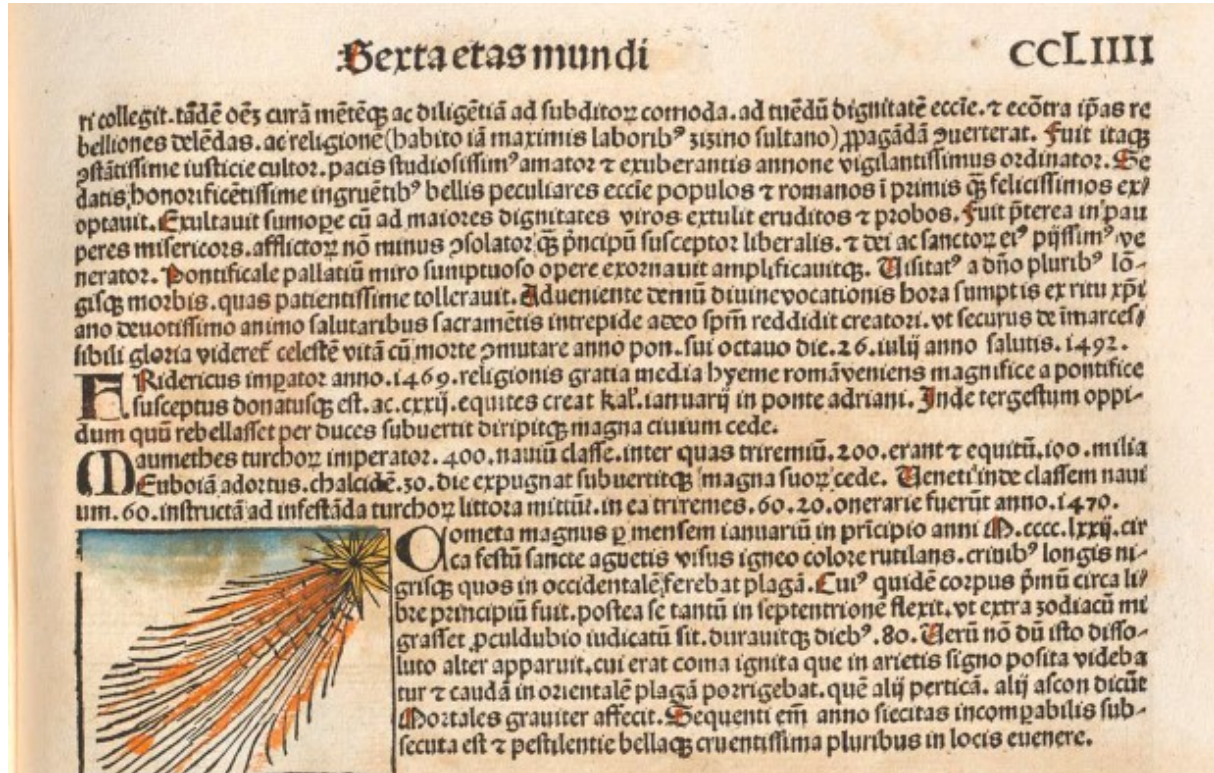 Sexta etas mundi
CCLIIII
ri collegit. tãdẽ oẽꝫ curã mẽtẽqꝫ ac diligẽtiã ad subditoꝝ comoda. ad tuẽdũ dignitatẽ eccĩe. ⁊ ecõtra ip̃as re
belliones delẽdas. ac religionẽ (habito iã maximis laborib⁹ zizino sultano) ꝓpagãdã ꝯuerterat. Fuit itaqꝫ
ꝯstãtissime iusticie cultor. pacis studiosissim⁹ amator ⁊ exuberantis annone vigilantissimus ordinator. Se
datis honorificẽtissime ingruẽtib⁹ bellis peculiares eccĩe populos ⁊ romanos ĩ primis qꝫ̃ felicissimos ex⸗
optauit. Exultauit sumoꝑe cũ ad maiores dignitates viros extulit eruditos ⁊ probos. Fuit p̃terea in pau
peres misericors. afflictoꝝ nõ minus ꝯsolator qꝫ̃ p̃ncipũ susceptor liberalis. ⁊ dei ac sanctoꝝ ei⁹ pijssim⁹ ve
nerator. Pontificale pallatiũ miro sumptuoso opere exornauit amplificauitqꝫ. Uisitat⁹ a dño plurib⁹ lõ⸗
gisqꝫ morbis. quas patientissime tollerauit. Adueniente demũ diuine vocationis hora sumptis ex ritu xp̃i
ano deuotissimo animo salutaribus sacramẽtis intrepide adeo sp̃m reddidit creatori. vt securus de ĩmarces⸗
sibili gloria videret̃ celestẽ vitã cũ morte ꝯmutare anno pon. sui octauo die. 26. iulij anno salutis. 1492.
FRidericus imꝑator anno. 1469. religionis gratia media hyeme romã veniens magnifice a pontifice
susceptus donatusqꝫ est. ac. cxxij. equites creat kal̃. ianuarij in ponte adriani. Inde tergestum oppi⸗
dum quũ rebellasset per duces subuertit diripitqꝫ magna ciuium cede.
MAumethes turchoꝝ imperator. 400. nauiũ classe. inter quas triremiũ. 200. erant ⁊ equitũ. 100. milia
Euboiã adortus. chalcidẽ. 30. die expugnat subuertitqꝫ magna suoꝝ cede. Ueneti inde classem naui
um. 60. instructã ad infestãda turchoꝝ littora mittũt. in ea triremes. 60. 20. onerarie fuerũt anno. 1470.
COmeta magnus ꝑ mensem ianuariũ in prĩcipio anni M. cccc. lxxij. cir
ca festũ sancte agnetis visus igneo colore rutilans. crinib⁹ longis ni⸗
grisqꝫ quos in occidentalẽ ferebat plagã. Cui⁹ quidẽ corpus p̃mũ circa li⸗
bre principiũ fuit. postea se tantũ in septentrionẽ flexit. vt extra zodiacũ mi
grasset ꝓculdubio iudicatũ sit. durauitqꝫ dieb⁹. 80. Uerũ nõ dũ isto disso⸗
luto alter apparuit. cui erat coma ignita que in arietis signo posita videba
tur ⁊ caudã in orientalẽ plagã porrigebat. quẽ alij perticã. alij ascon dicũt
Mortales grauiter affecit. Sequenti em̃ anno siccitas incomꝑabilis sub⸗
secuta est ⁊ pestilentie bellaqꝫ cruentissima pluribus in locis euenere.